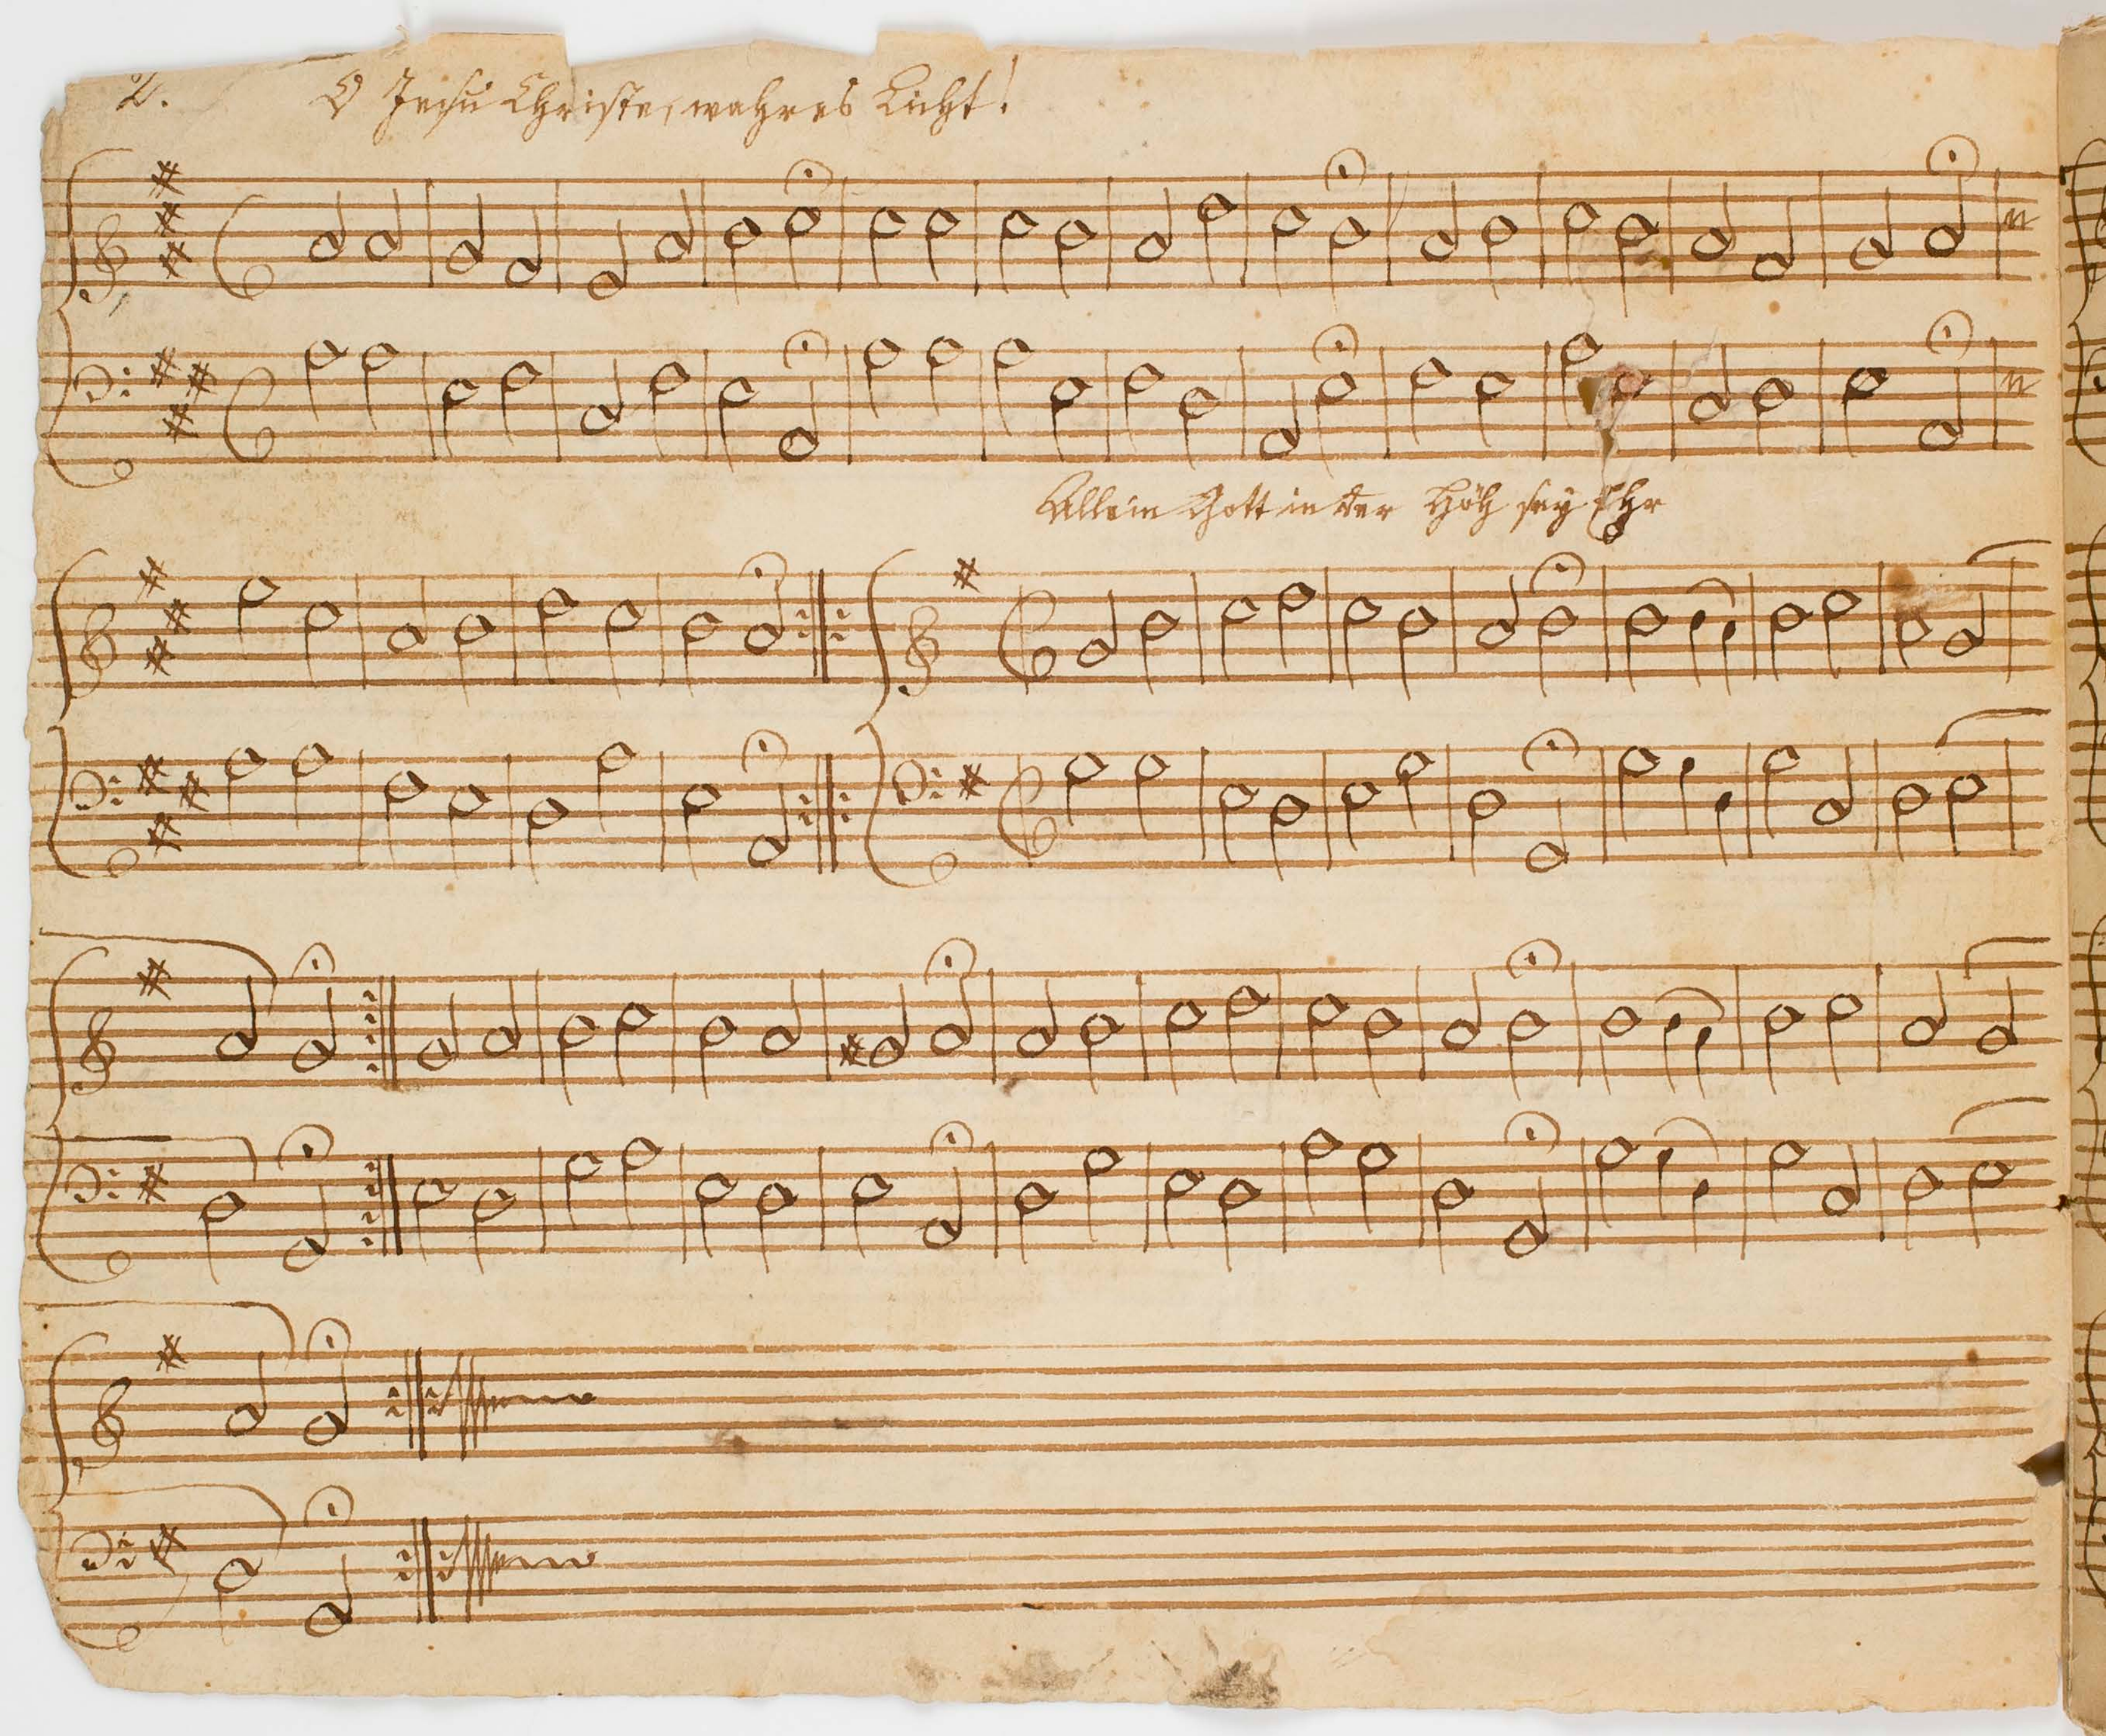 2. O Jesu Christe, wahres Licht!
Allein Gott in der Höh sey Ehr